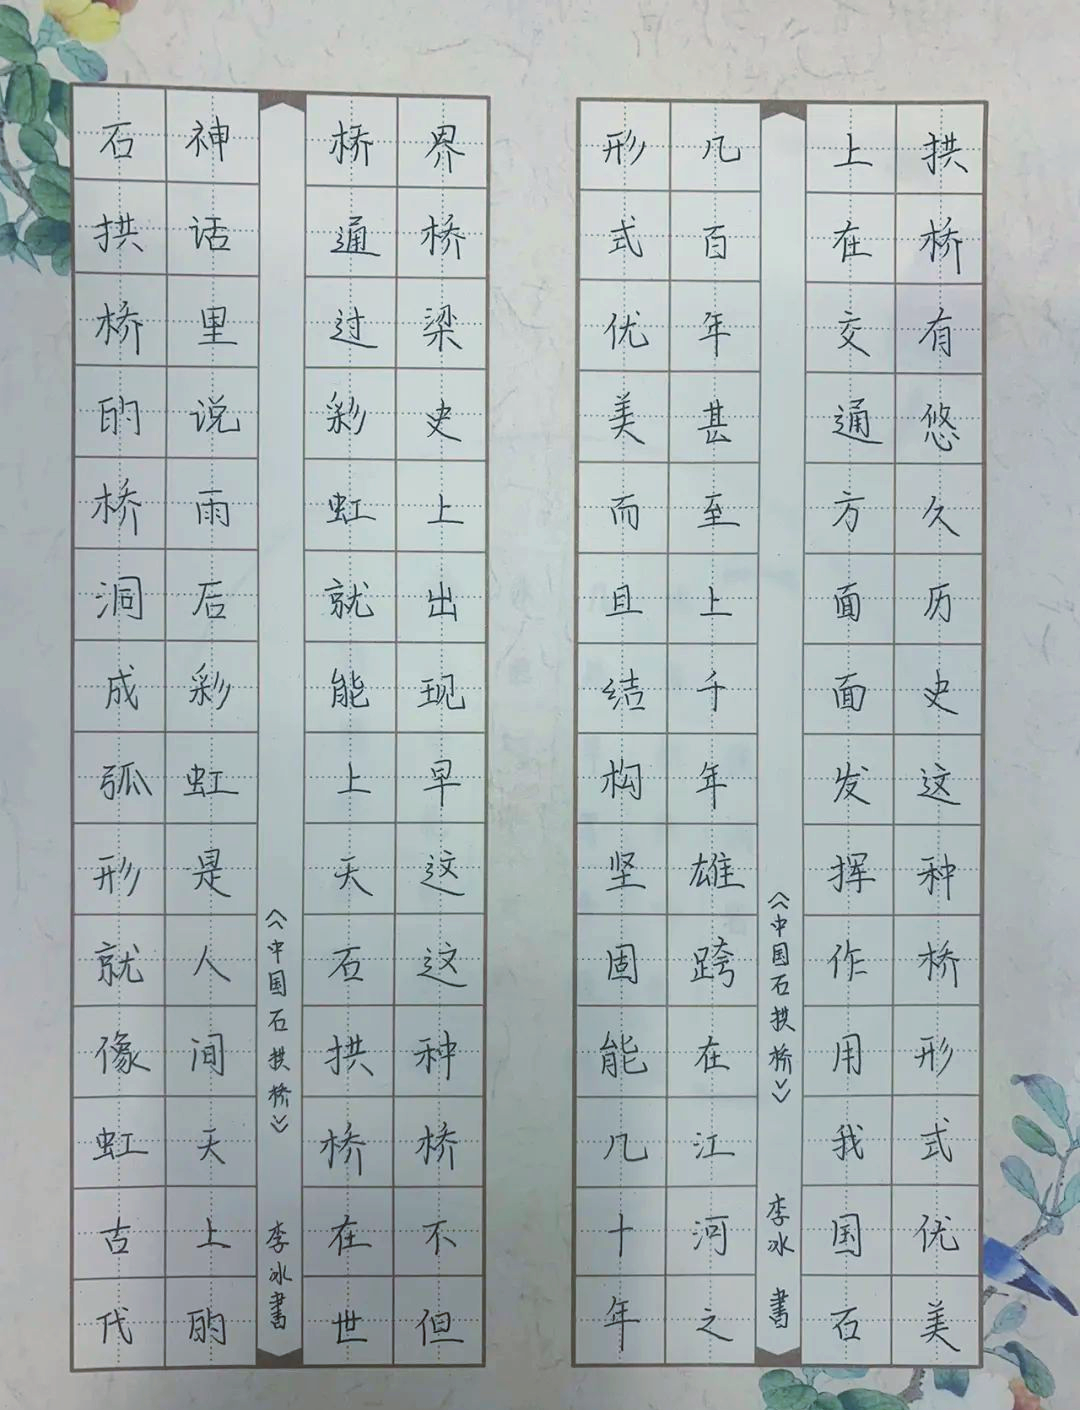 石拱桥的桥洞成弧形就像虹古代
神话里说雨后彩虹是人间天上的
《中国石拱桥》 李冰書
桥通过彩虹就能上天石拱桥在世
界桥梁史上出现早这这种桥不但
形式优美而且结构坚固能几十年
几百年甚至上千年雄跨在江河之
《中国石拱桥》 李冰 書
上在交通方面面发挥作用我国石
拱桥有悠久历史这种桥形式优美